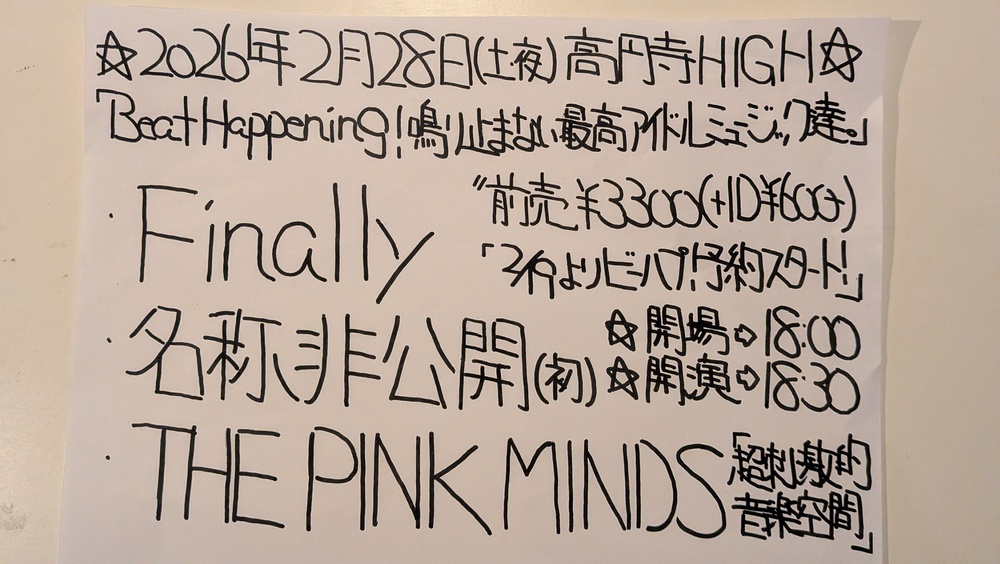 ☆2026年2月28日(土夜)高円寺HIGH☆
「Beat Happening!鳴り止まない最高アイドルミュージック達。」
・Finally
"前売¥3300(+1D¥600+)
「2/9よりビーハプ!予約スタート!」
・名称非公開(初)
☆開場⇨18:00
☆開演⇨18:30
・THE PINK MINDS
「超刺激的
音楽空間」